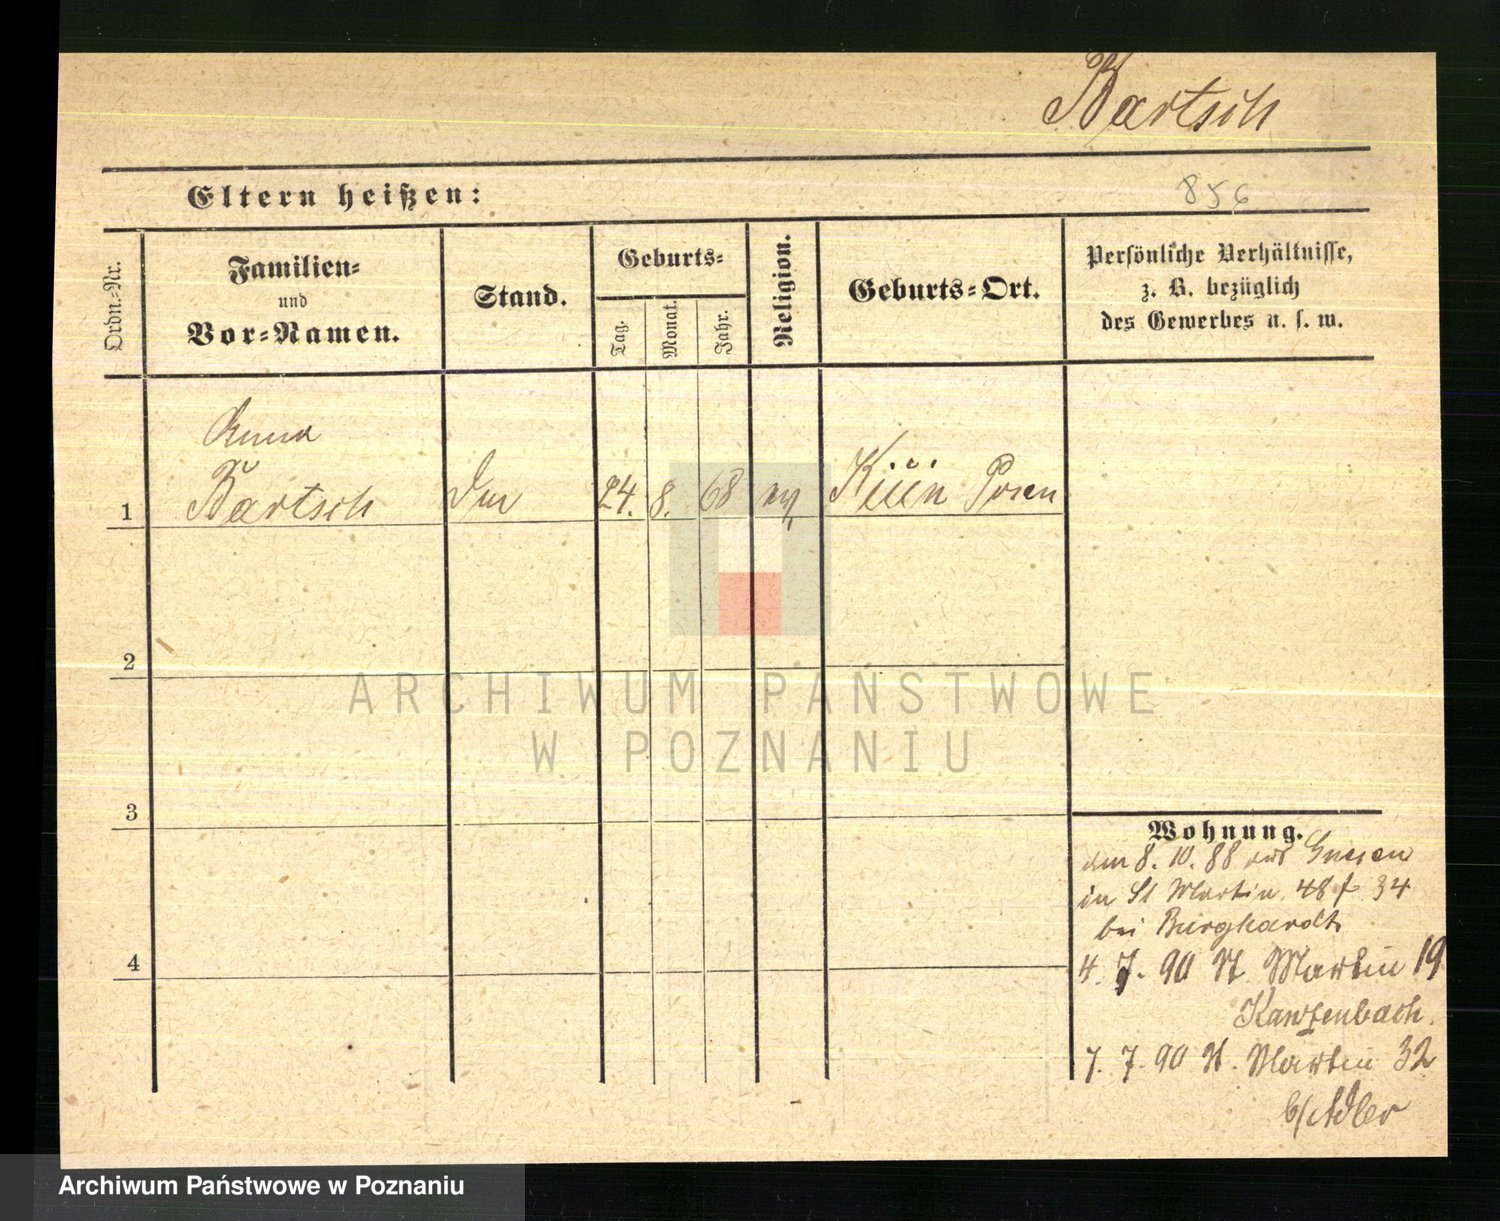 Bartsch
856
Eltern heißen:
Ordn.-Nr.
Familien-
und
Vor-Namen.
Stand.
Geburts-
Tag.
Monat.
Jahr.
Religion.
Geburts-Ort.
Persönliche Verhältnisse,
z. B. bezüglich
des Gewerbes u. s. w.
Anna
1 Bartsch 24. 8. 68 ev Posen
2
3
4
ARCHIWUM PAŃSTWOWE
W POZNANIU
Wohnung.
am 8. 10. 88 aus Gnesen
in St Martin 48 f 34
bei Burghardt
4. 7. 90 St. Martin 19
Kantzenbach.
7. 7. 90 St. Martin 32
b/ Adler
Archiwum Państwowe w Poznaniu